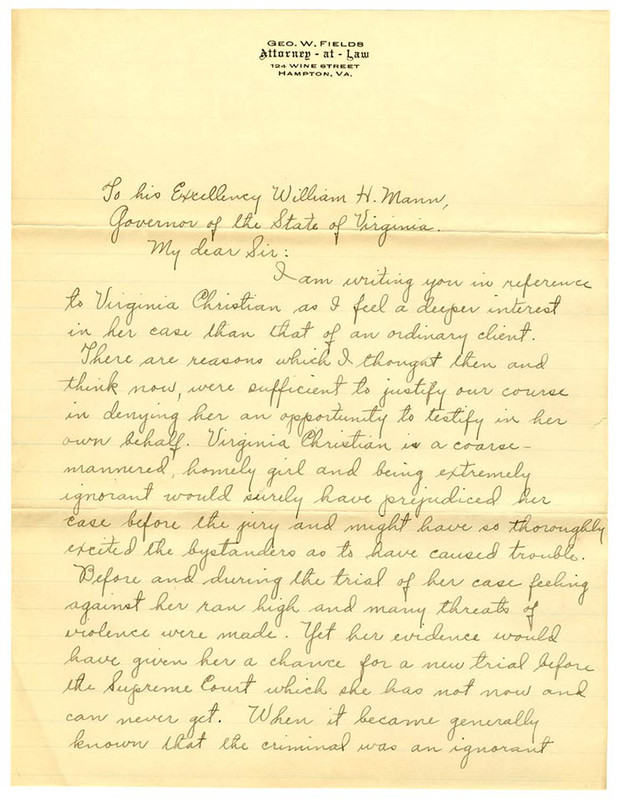 GEO. W. FIELDS
Attorney - at - Law
124 WINE STREET
HAMPTON, VA.
To his Excellency William H. Mann,
Governor of the State of Virginia.
My dear Sir:
I am writing you in reference
to Virginia Christian as I feel a deeper interest
in her case than that of an ordinary client.
There are reasons which I thought then and
think now, were sufficient to justify our course
in denying her an opportunity to testify in her
own behalf. Virginia Christian is a coarse-
mannered, homely girl and being extremely
ignorant would surely have prejudiced her
case before the jury and might have so thoroughly
excited the bystanders as to have caused trouble.
Before and during the trial of her case feeling
against her ran high and many threats of
violence were made. Yet her evidence would
have given her a chance for a new trial before
the Supreme Court which she has not now and
can never get. When it became generally
known that the criminal was an ignorant